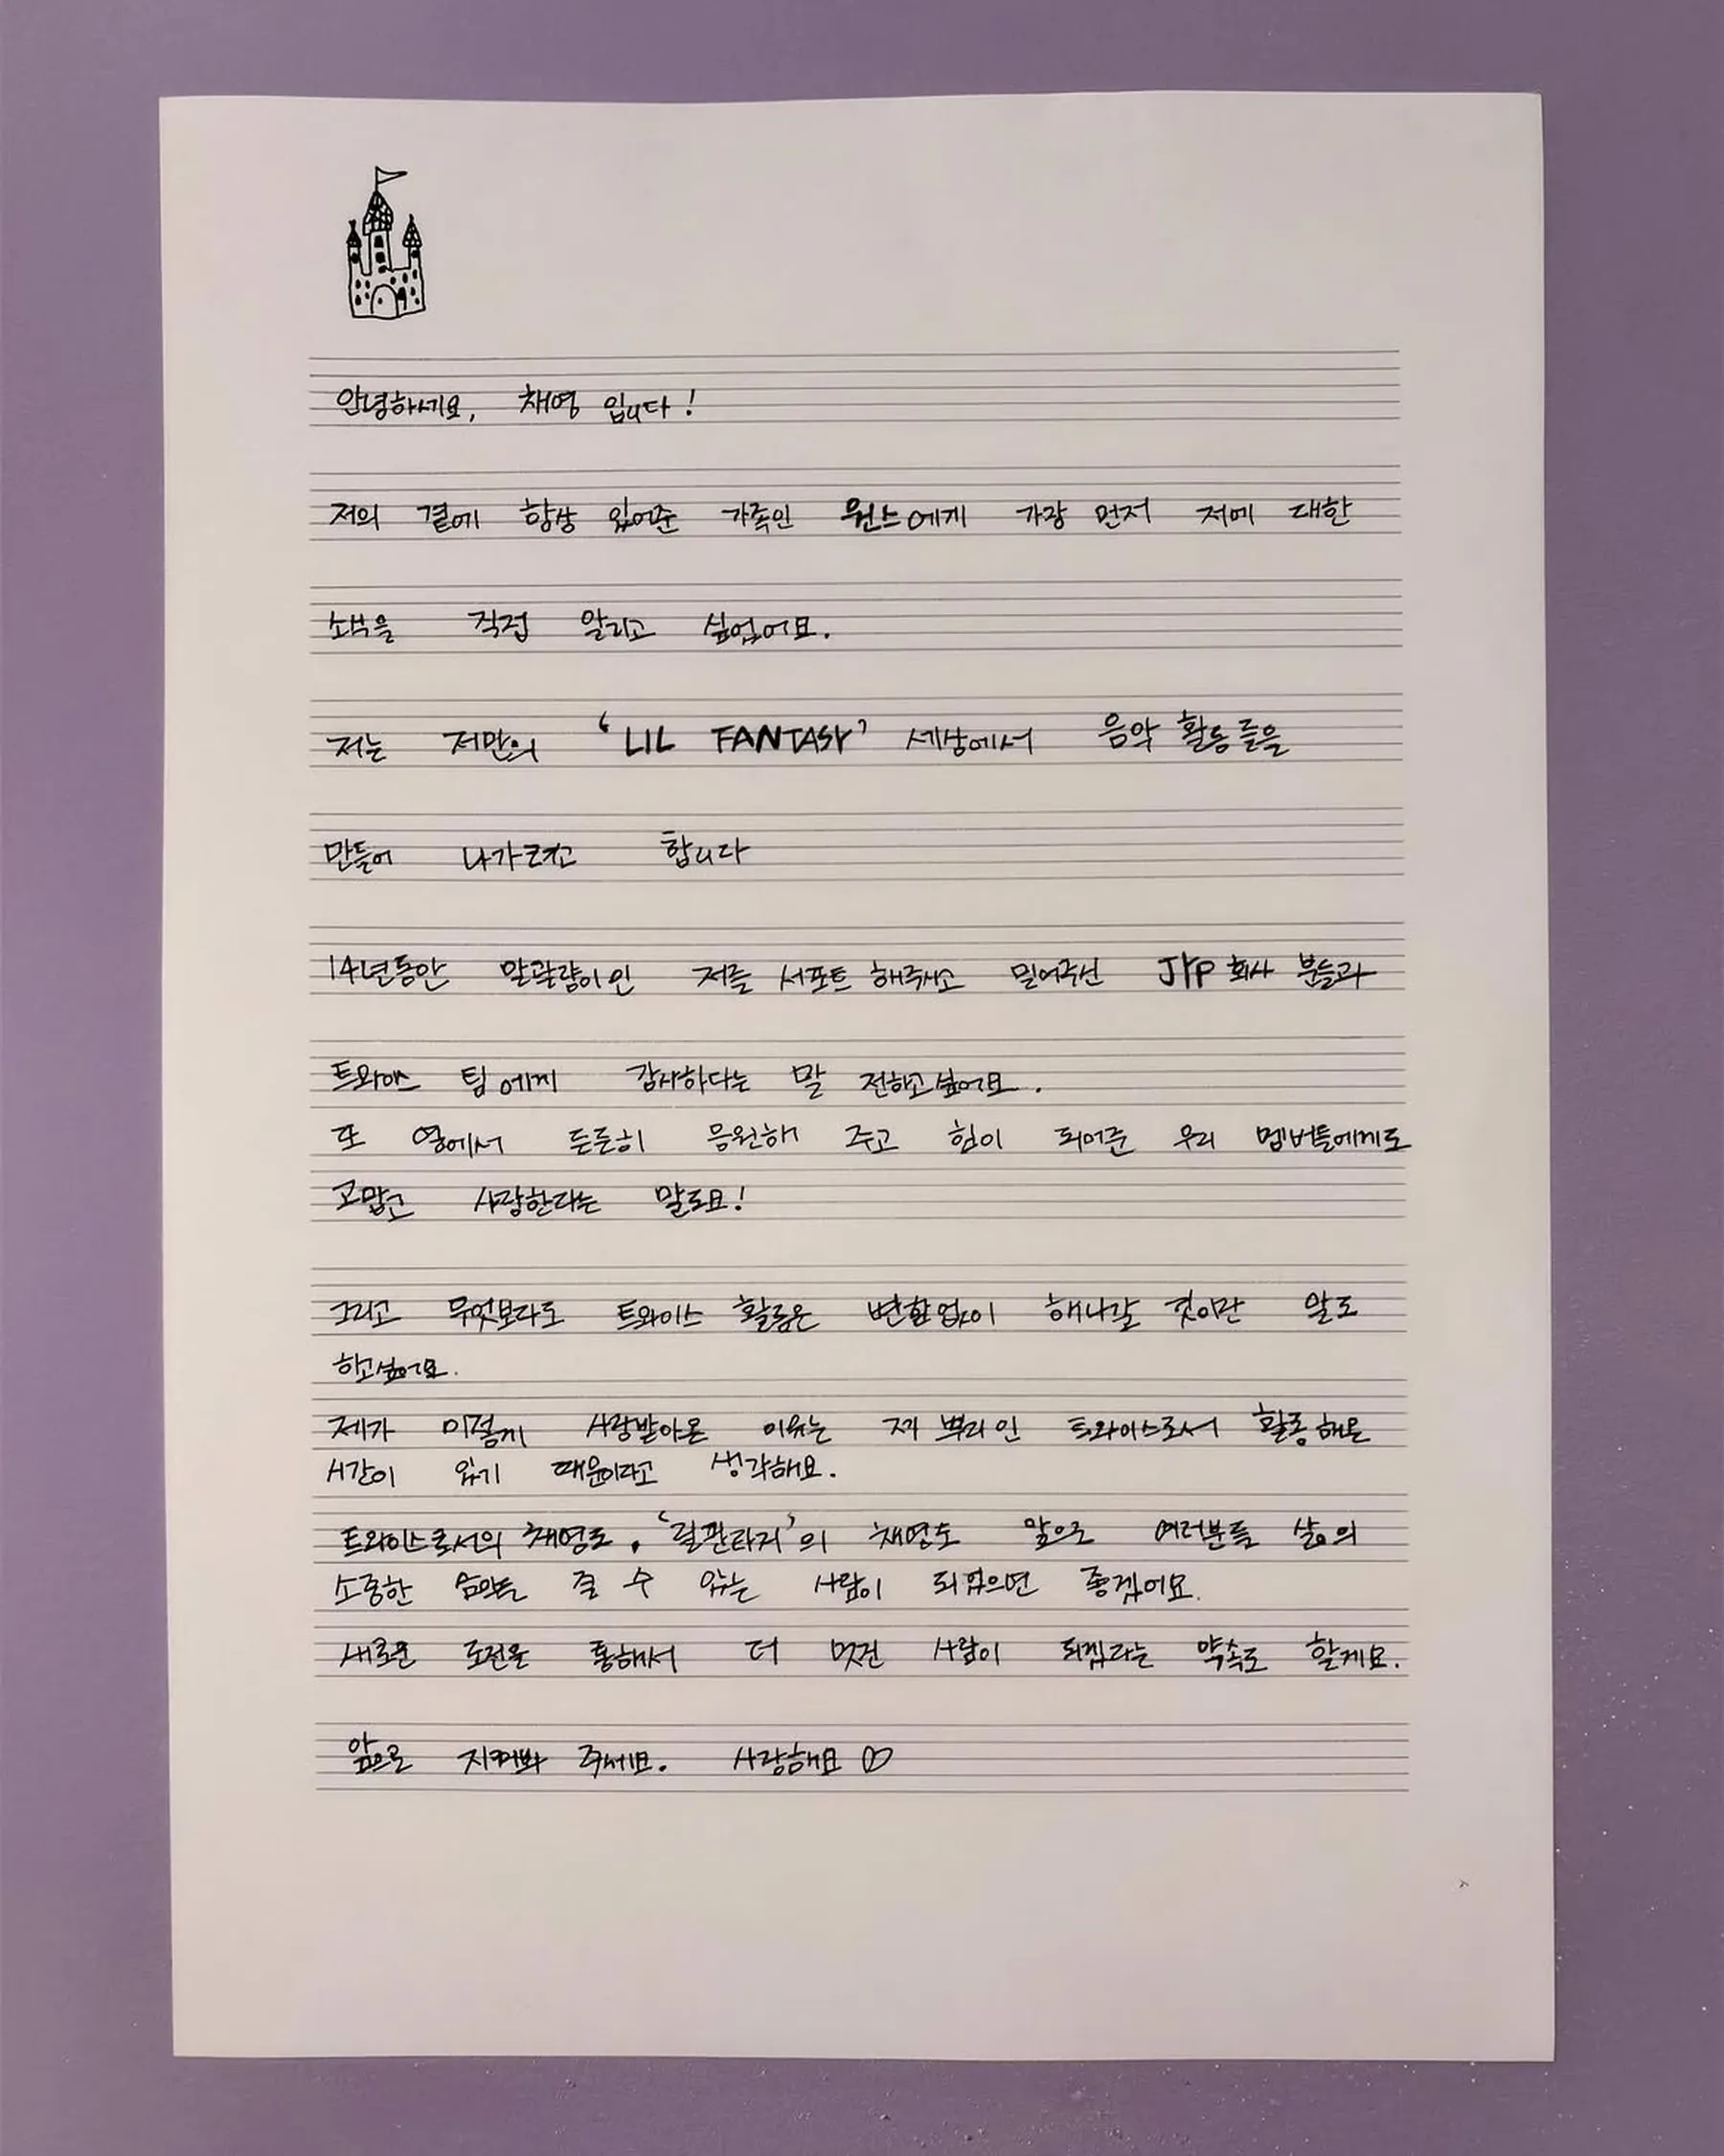 안녕하세요, 채영 입니다!
저의 곁에 항상 있어준 가족인 원스에게 가장 먼저 저에 대한
소식을 직접 알리고 싶었어요.
저는 저만의 'LIL FANTASY' 세상에서 음악 활동들을
만들어 나가려고 합니다
14년동안 말괄량이인 저를 서포트 해주시고 밀어주신 JYP 회사 분들과
트와이스 팀에게 감사하다는 말 전하고싶어요.
또 옆에서 든든히 응원해 주고 힘이 되어준 우리 멤버들에게도
고맙고 사랑한다는 말도요!
그리고 무엇보다도 트와이스 활동은 변함없이 해나갈 것이란 말도
하고싶어요.
제가 이렇게 사랑받아온 이유는 제 뿌리인 트와이스로서 활동해온
시간이 있기 때문이라고 생각해요.
트와이스로서의 채영도, '릴판타지'의 채영도 앞으로 여러분들 삶의
소중한 음악을 줄 수 있는 사람이 되었으면 좋겠어요.
새로운 도전을 통해서 더 멋진 사람이 되겠다는 약속도 할게요.
앞으로 지켜봐 주세요. 사랑해요♡